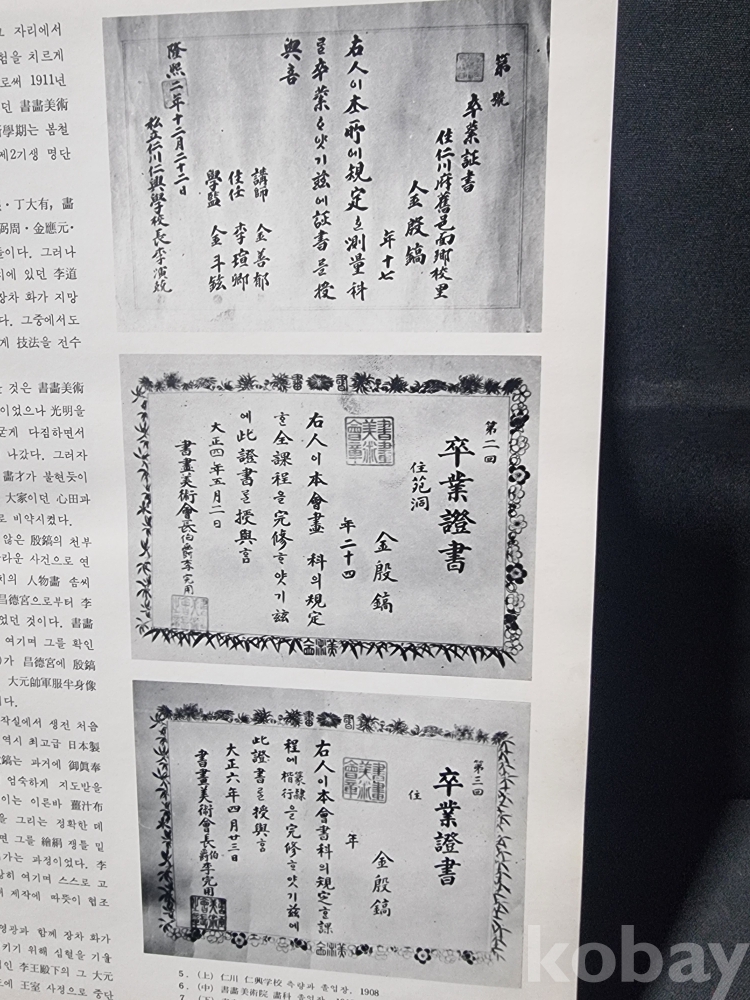 그 자리에서
험을 치르게
로써 1911년
던 書畵美術
新學期는 봄철
제2기생 명단
丁大有, 畵
弼周・金應元・
들이다. 그러나
지에 있던 李道
장차 화가 지망
다. 그중에서도
게 技法을 전수
것은 書畵美術
이었으나 光明을
굳게 다짐하면서
나갔다. 그러자
畵才가 불현듯이
大家이던 心田과
로 비약시켰다.
않은 殷鎬의 천부
라운 사건으로 연
의 人物畵 솜씨
昌德宮으로부터 李
었던 것이다. 書畵
여기며 그를 확인
가 昌德宮에 殷鎬
大元帥軍服半身像
다.
작실에서 생전 처음
역시 최고급 日本製
鎬는 과거에 御眞奉
엄숙하게 지도받을
이는 이른바 薑汁布
을 그리는 정확한 데
면 그를 繪絹 쟁틀 밑
가는 과정이었다. 李
히 여기며 스스로 고
제작에 따뜻이 협조
영광과 함께 장차 화가
키기 위해 심혈을 기울
인 李王殿下의 그 大元
에 王室 사정으로 중단
第 號
卒業証書
住仁川府舊邑面鄕校里
金殷鎬
年十七
右人이本所에規定 測量科
를卒業 얏기玆에証書를授
與喜
講師 金善郁
主任 李瑄卿
學監 金斗鉉
隆熙二年十二月二十二日
私立仁川仁興學校長李演
第二回
卒業證書
住苑洞
金殷鎬
年二十四
書畫美術會章
右人이本會畫 科의規定
全課程을完修 얏기玆
에此證書를授與홈
大正四年五月二日
書畫美術會長伯爵李完用
第三回
卒業證書
住
金殷鎬
年
書畫美術會章
右人이本會書科의規定 課
程에 篆隸楷行 을完修 얏기玆에
此證書를授與홈
大正六年四月廿三日
書畫美術會長伯爵李完用
5. (上) 仁川 仁興学校 측량과 졸업장, 1908
6. (中) 書畵美術院 畵科 졸업장
7. (下)
kobay